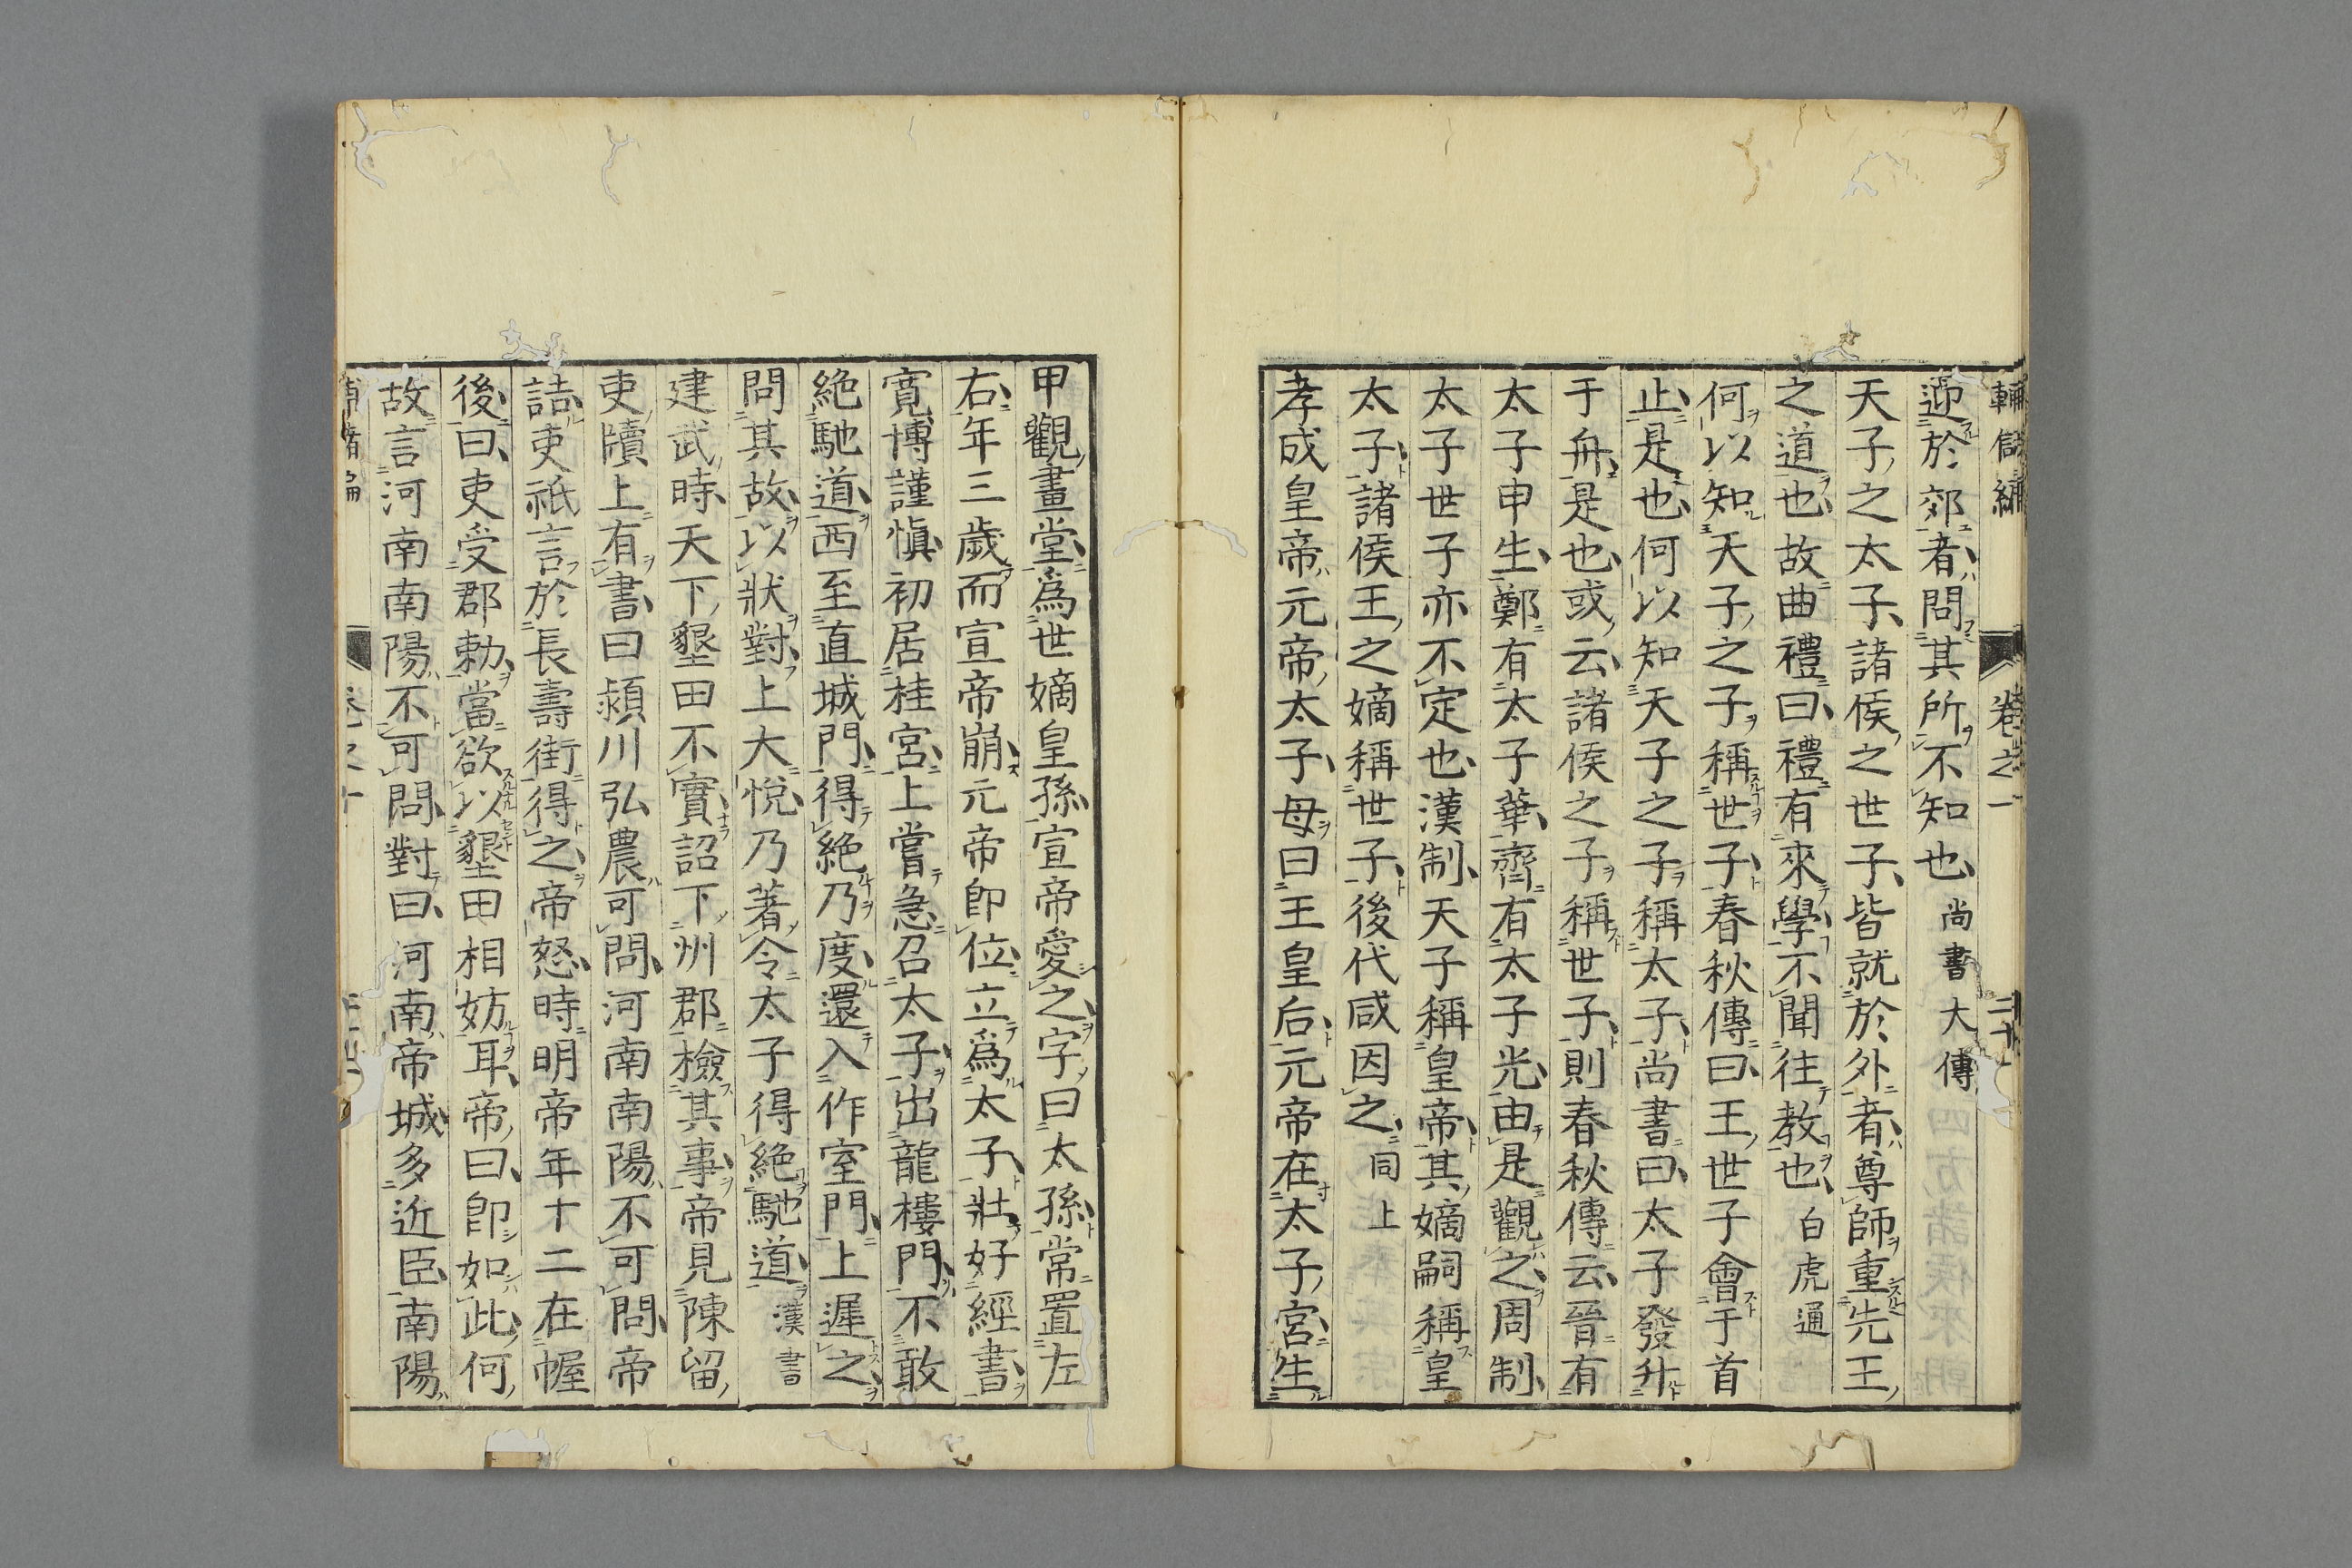 輔儲編 卷之一 二十
迎於郊者問其所不知也尚書大傳
天子之太子諸侯之世子皆就於外者尊師重先王
之道也故曲禮曰禮有來學不聞往教也白虎通
何以知天子之子稱世子春秋傳曰王世子會于首
止是也何以知天子之子稱太子尚書曰太子發升
于舟是也或云諸侯之子稱世子則春秋傳云晉有
太子申生鄭有太子華齊有太子光由是觀之周制
太子世子亦不定也漢制天子稱皇帝其嫡嗣稱皇
太子諸侯王之嫡稱世子後代咸因之同上
孝成皇帝元帝太子母曰王皇后元帝在太子宮生
甲觀畫堂爲世嫡皇孫宣帝愛之字曰太孫常置左
右年三歲而宣帝崩元帝卽位立爲太子壯好經書
寬博謹愼初居桂宮上嘗急召太子出龍樓門不敢
絶馳道西至直城門得絶乃度還入作室門上遲之
問其故以狀對上大悅乃著令太子得絶馳道漢書
建武時天下墾田不實詔下州郡檢其事帝見陳留
吏牘上有書曰潁川弘農可問河南南陽不可問帝
詰吏祇言於長壽街得之帝怒時明帝年十二在幄
後曰吏受郡勅當欲以墾田相妨耳帝曰卽如此何
故言河南南陽不可問對曰河南帝城多近臣南陽